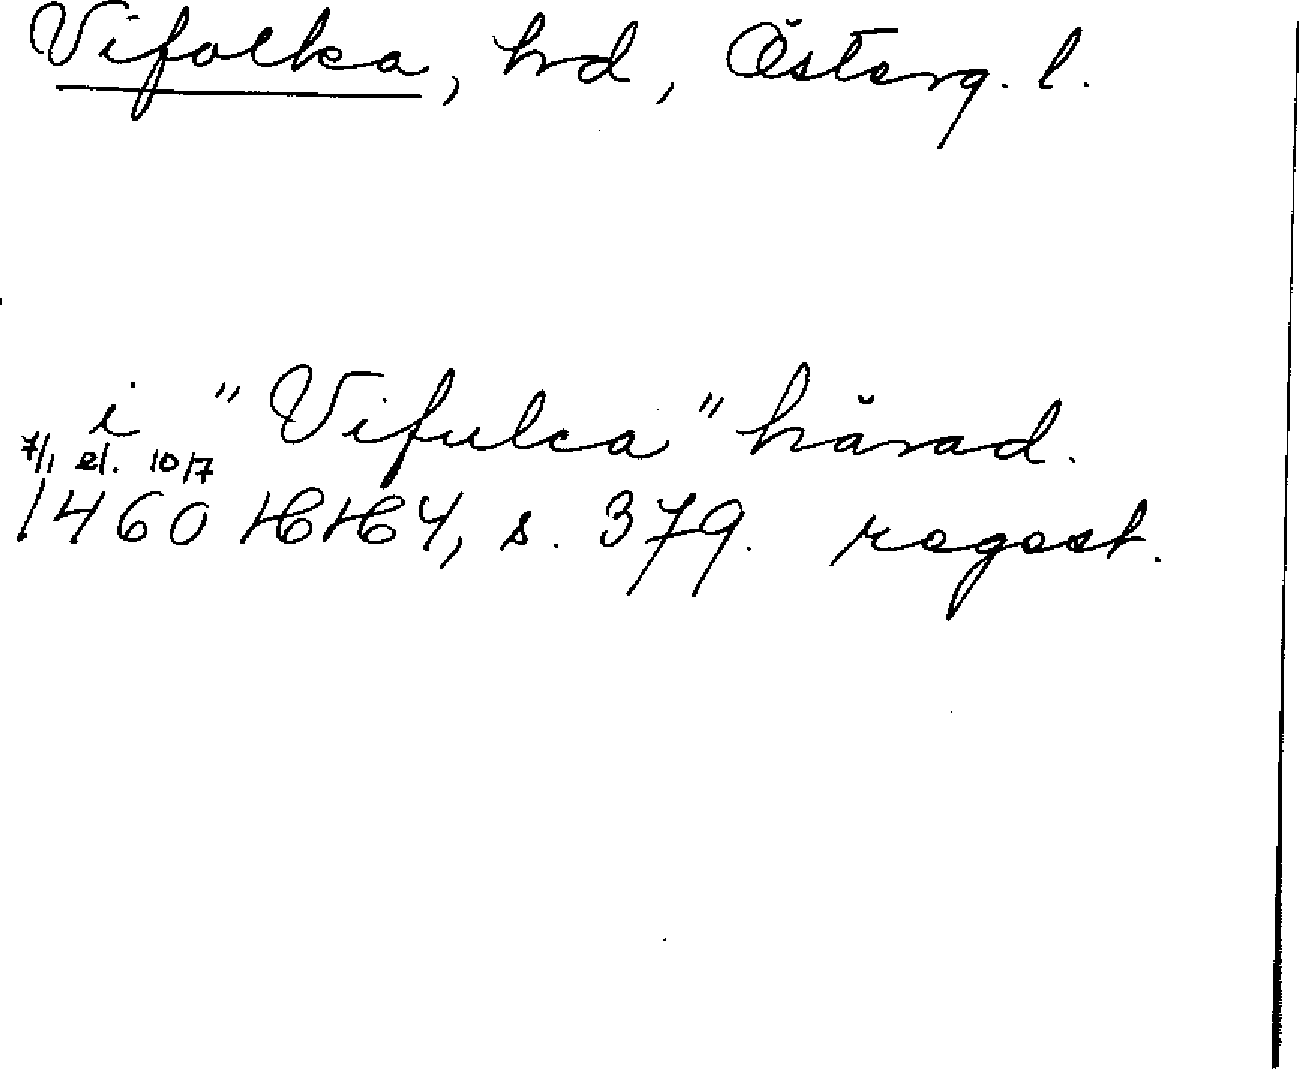 Vifolka, hd, Österg. l.
i "Vifulca" härad.
7/1 el. 10/7
1460 HH 4, s. 379. regest.